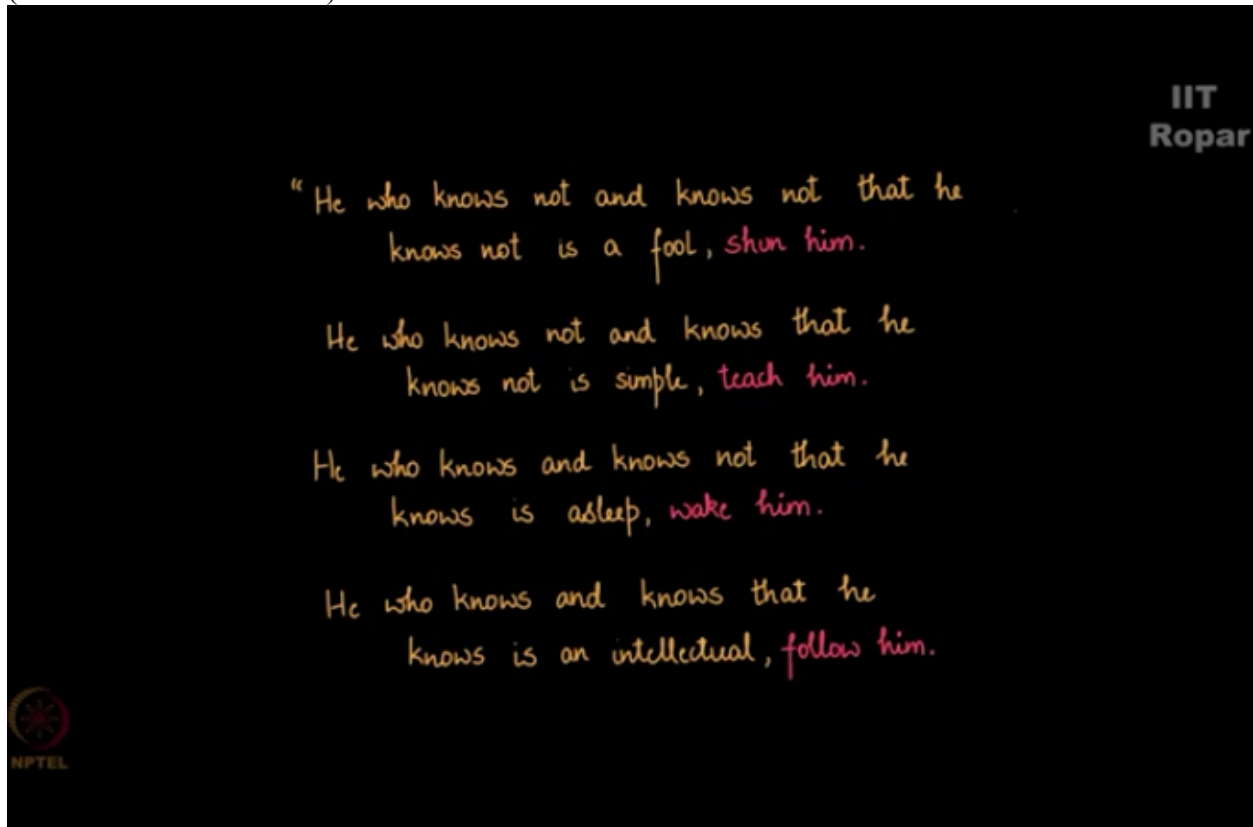 IIT
Ropar
“He who knows not and knows not that he
knows not is a fool, shun him.
He who knows not and knows that he
knows not is simple, teach him.
He who knows and knows not that he
knows is asleep, wake him.
He who knows and knows that he
knows is an intellectual, follow him.
NPTEL